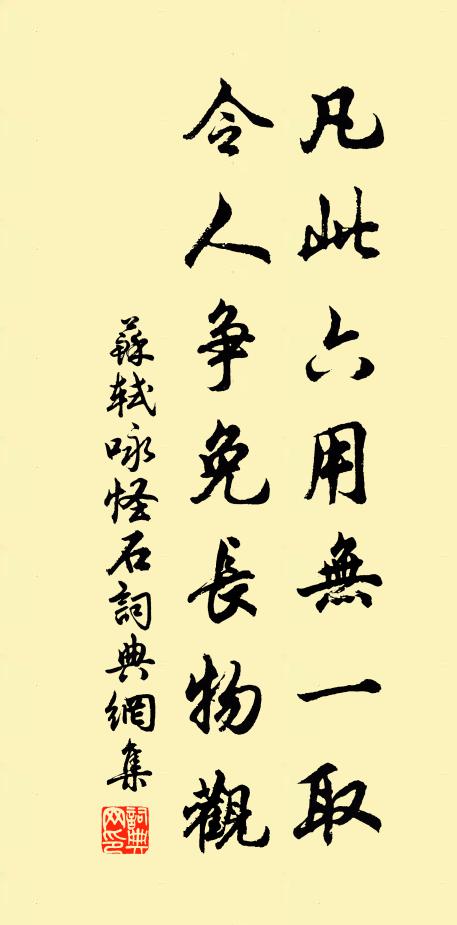 凡此六用無一取
令人争免長物觀
蘇軾咏怪石詞典網集
詞典網印